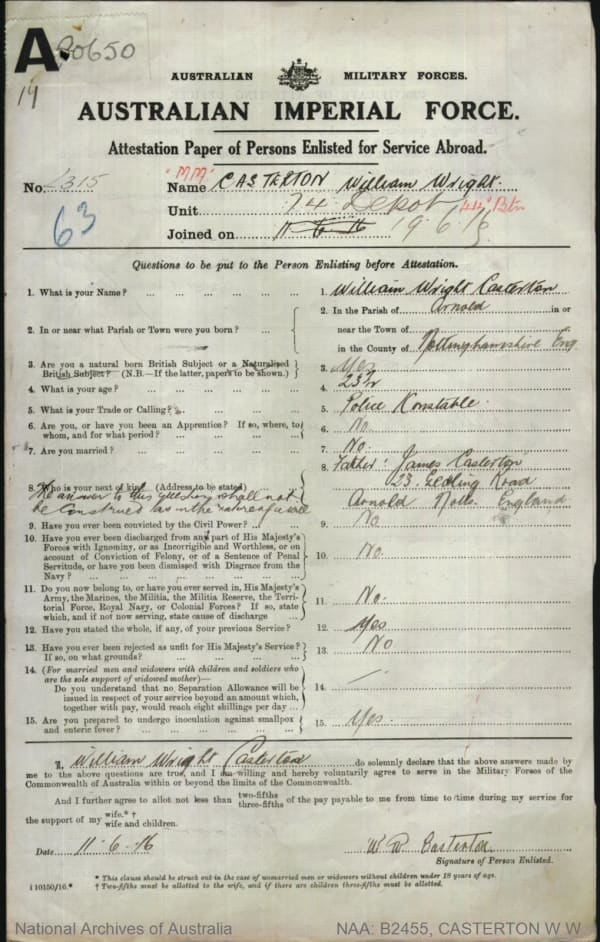 A.
20650
14
AUSTRALIAN MILITARY FORCES.
AUSTRALIAN IMPERIAL FORCE.
Attestation Paper of Persons Enlisted for Service Abroad.
No. 2315
"MM"
Name CASTERTON William Wright.
63
Unit 74 Depot 44th Btn
Joined on 11-6-16 19.6.16
Questions to be put to the Person Enlisting before Attestation.
1. What is your Name? ... ... ... ...
1. William Wright Casterton
2. In or near what Parish or Town were you born? ...
2. In the Parish of Arnold in or
near the Town of
in the County of Nottinghamshire Eng
3. Are you a natural born British Subject or a Naturalised
British Subject? (N.B.—If the latter, papers to be shown.)
3. Yes
4. What is your age? ... ... ... ...
4. 23
5. What is your Trade or Calling? ... ... ...
5. Police Konstable.
6. Are you, or have you been an Apprentice? If so, where, to
whom, and for what period? ... ... ... ...
6. No
7. Are you married? ... ... ... ...
7. No.
8. Who is your next of kin? (Address to be stated) ...
The answer to this question shall not
be construed as in the nature of a will
8. Father: James Casterton
23. Gedling Road
Arnold Notts. England
9. Have you ever been convicted by the Civil Power? ...
9. No
10. Have you ever been discharged from any part of His Majesty's
Forces with Ignominy, or as Incorrigible and Worthless, or on
account of Conviction of Felony, or of a Sentence of Penal
Servitude, or have you been dismissed with Disgrace from the
Navy? ... ... ... ... ...
10. No.
11. Do you now belong to, or have you ever served in, His Majesty's
Army, the Marines, the Militia, the Militia Reserve, the Terri-
torial Force, Royal Navy, or Colonial Forces? If so, state
which, and if not now serving, state cause of discharge ...
11. No.
12. Have you stated the whole, if any, of your previous Service?
12. Yes
13. Have you ever been rejected as unfit for His Majesty's Service?
If so, on what grounds? ... ... ... ...
13. No
14. (For married men and widowers with children and soldiers who
are the sole support of widowed mother)—
Do you understand that no Separation Allowance will be
issued in respect of your service beyond an amount which,
together with pay, would reach eight shillings per day ...
14. —
15. Are you prepared to undergo inoculation against smallpox
and enteric fever? ... ... ... ...
15. Yes.
I, William Wright Casterton do solemnly declare that the above answers made by
me to the above questions are true, and I am willing and hereby voluntarily agree to serve in the Military Forces of the
Commonwealth of Australia within or beyond the limits of the Commonwealth.
And I further agree to allot not less than two-fifths three-fifths of the pay payable to me from time to time during my service for
the support of my wife.*† wife and children.
Date 11-6-16
W W Casterton
Signature of Person Enlisted.
* This clause should be struck out in the case of unmarried men or widowers without children under 18 years of age.
† Two-fifths must be allotted to the wife, and if there are children three-fifths must be allotted.
National Archives of Australia
NAA: B2455, CASTERTON W W